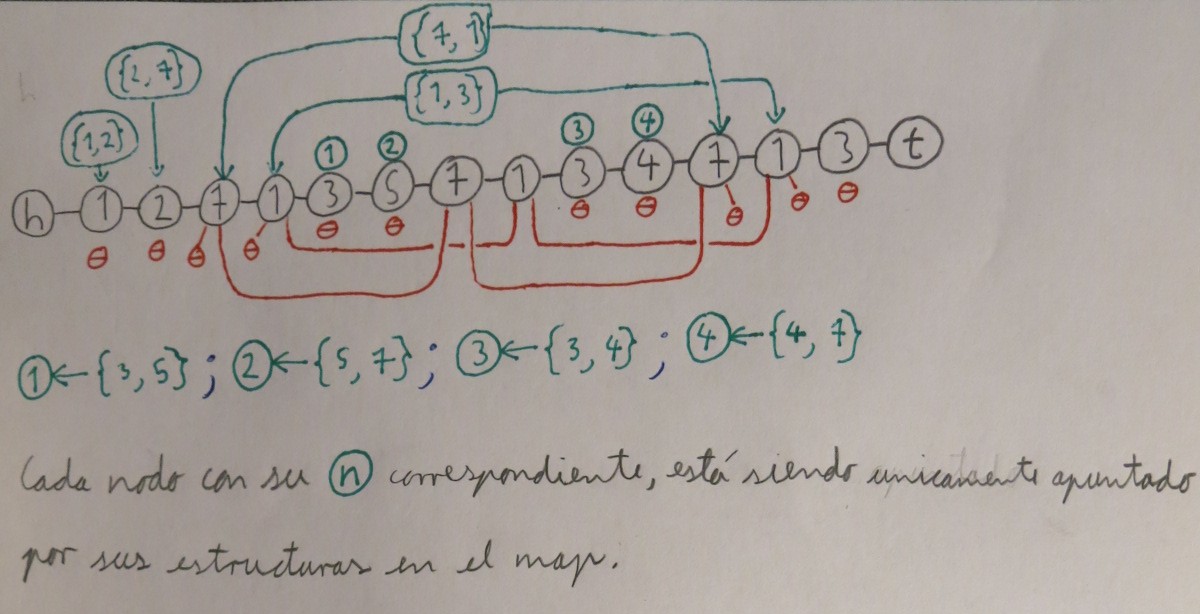 {7, 1}
{2, 7}
{1, 3}
{1,2}
1 2 3 4
h 1 2 7 1 3 5 7 1 3 4 7 1 3 t
θ θ θ θ θ θ θ θ θ θ θ
1 ← {3, 5} ; 2 ← {5, 7} ; 3 ← {3, 4} ; 4 ← {4, 7}
Cada nodo con su n correspondiente, está siendo unicamente apuntado
por sus estructuras en el map.